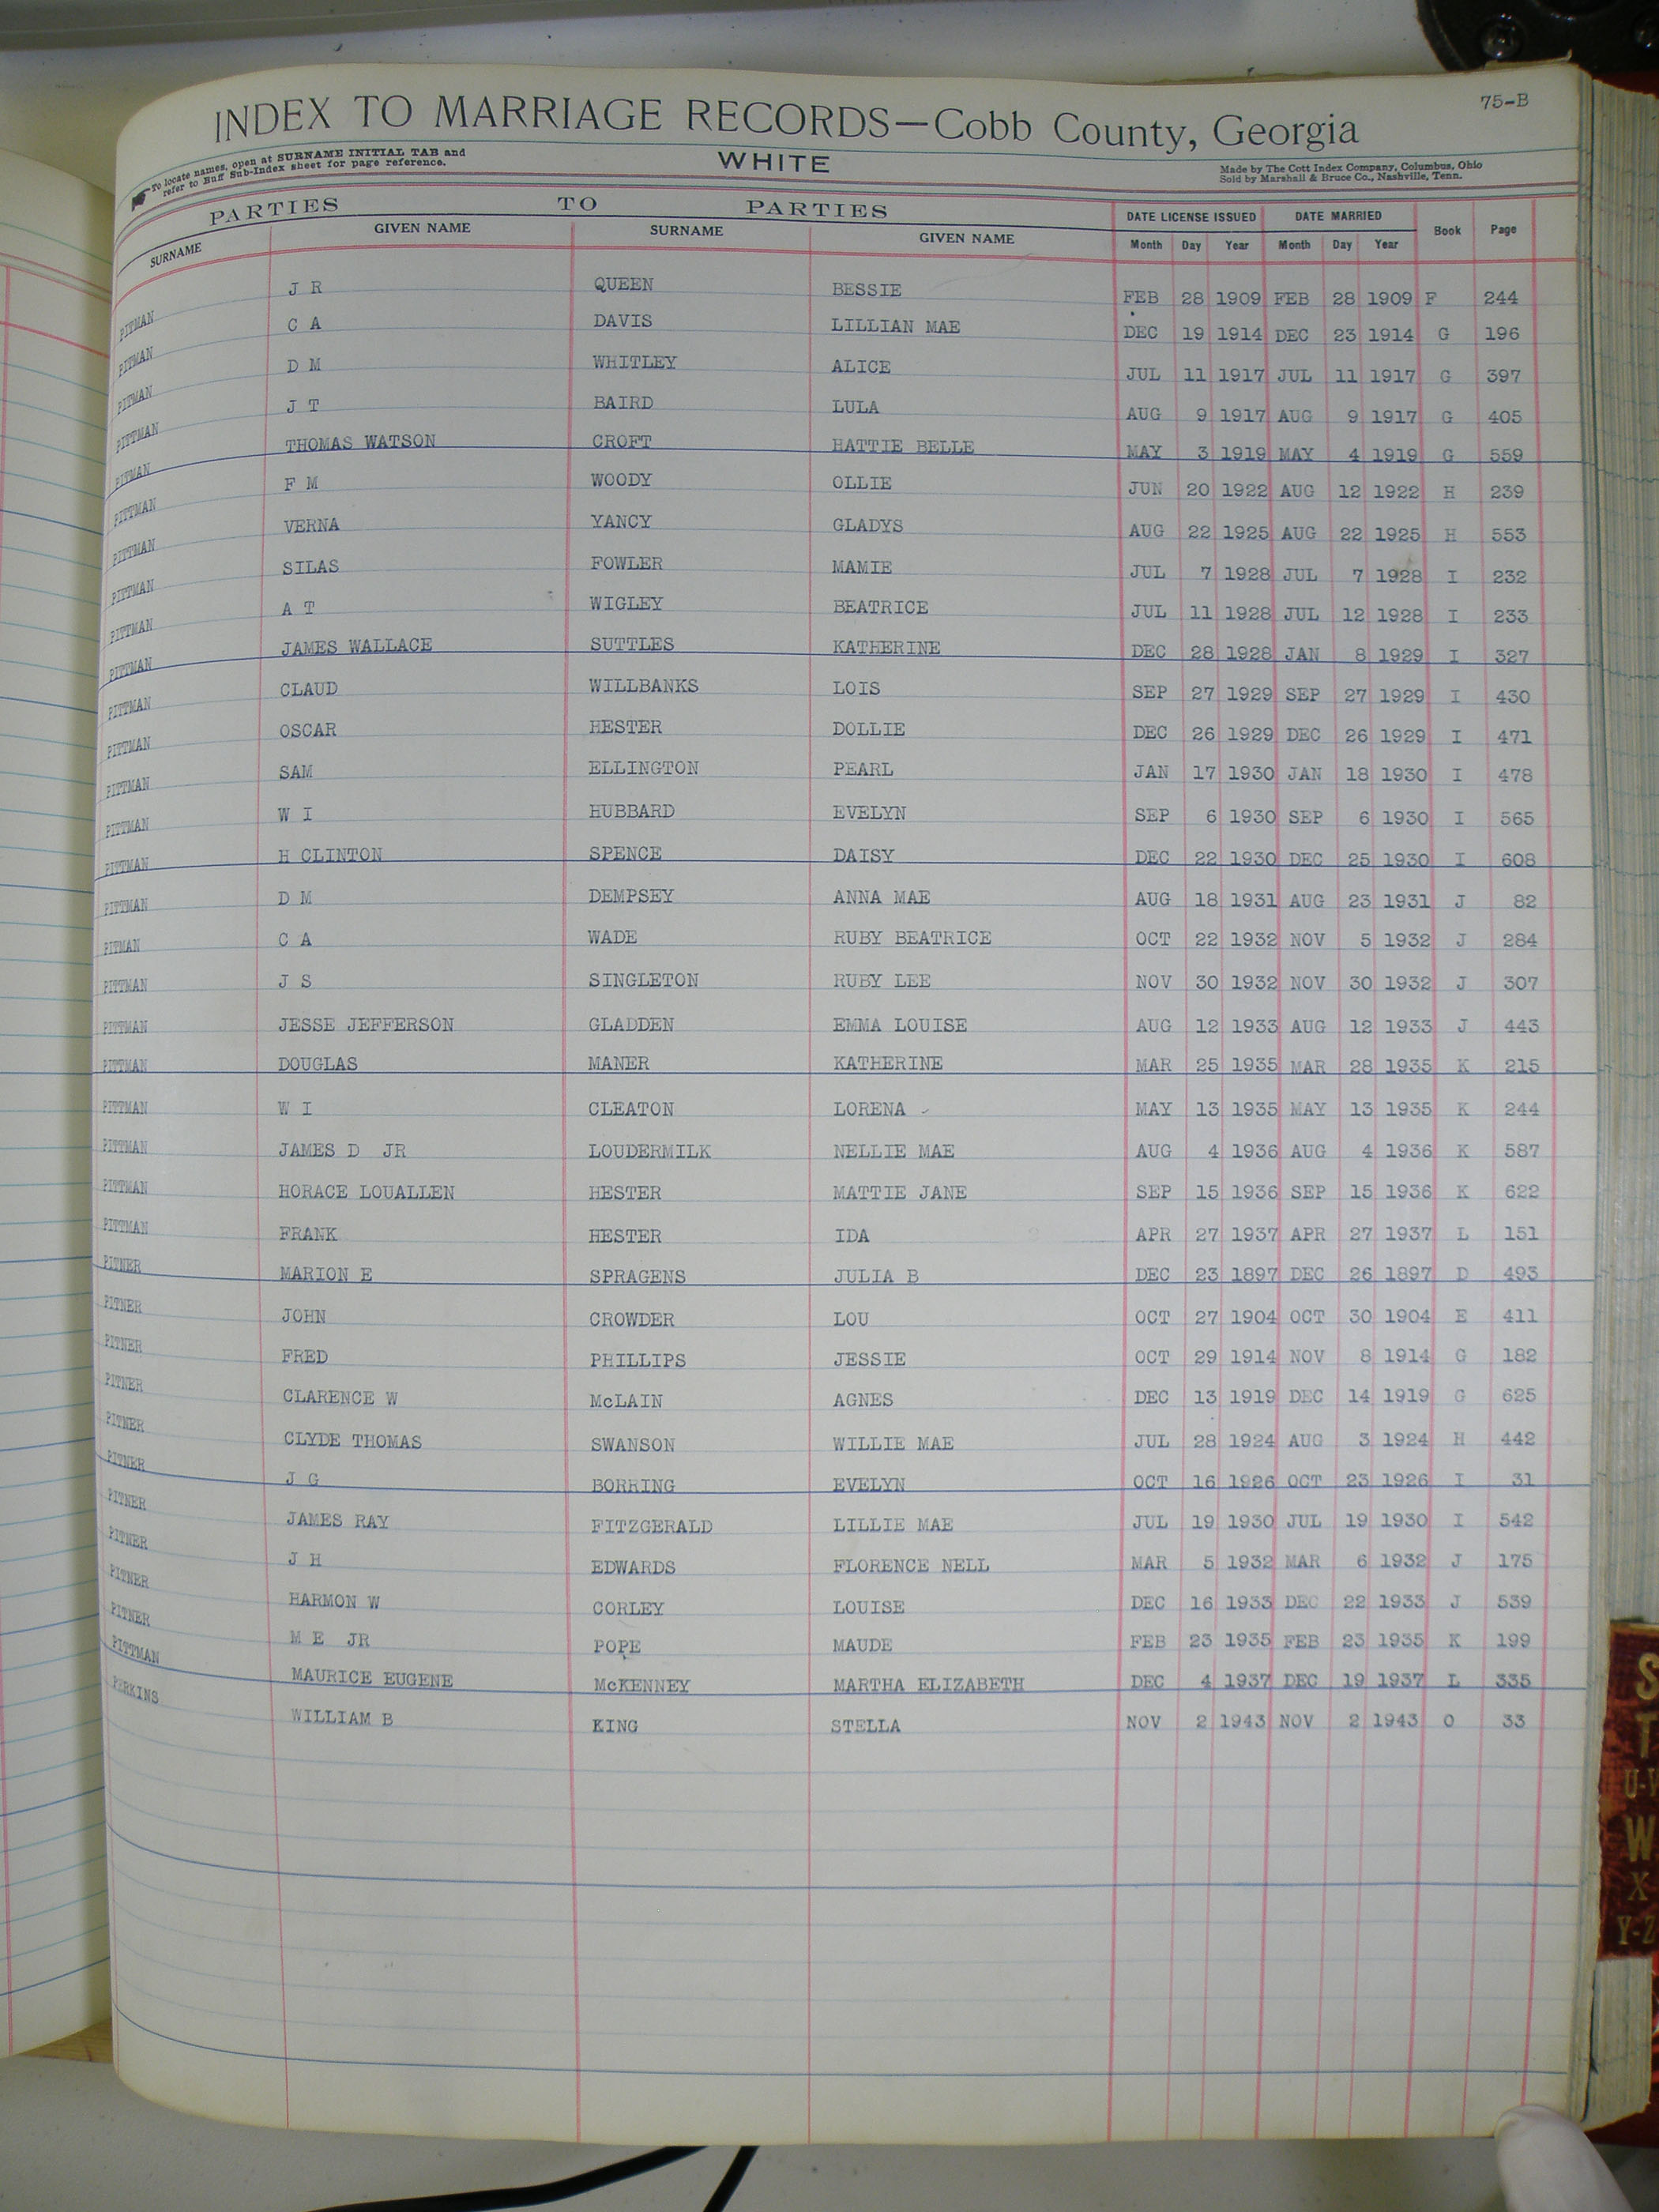 75-B
INDEX TO MARRIAGE RECORDS—Cobb County, Georgia
To locate names, open at SURNAME INITIAL TAB and
refer to Buff Sub-Index sheet for page reference.
WHITE
Made by The Cott Index Company, Columbus, Ohio
Sold by Marshall & Bruce Co., Nashville, Tenn.
PARTIES TO PARTIES DATE LICENSE ISSUED DATE MARRIED Book Page
SURNAME GIVEN NAME SURNAME GIVEN NAME Month Day Year Month Day Year
PITMAN J R QUEEN BESSIE FEB 28 1909 FEB 28 1909 F 244
PITMAN C A DAVIS LILLIAN MAE DEC 19 1914 DEC 23 1914 G 196
PITMAN D M WHITLEY ALICE JUL 11 1917 JUL 11 1917 G 397
PITTMAN J T BAIRD LULA AUG 9 1917 AUG 9 1917 G 405
PITMAN THOMAS WATSON CROFT HATTIE BELLE MAY 3 1919 MAY 4 1919 G 559
PITTMAN F M WOODY OLLIE JUN 20 1922 AUG 12 1922 H 239
PITTMAN VERNA YANCY GLADYS AUG 22 1925 AUG 22 1925 H 553
PITTMAN SILAS FOWLER MAMIE JUL 7 1928 JUL 7 1928 I 232
PITTMAN A T WIGLEY BEATRICE JUL 11 1928 JUL 12 1928 I 233
PITTMAN JAMES WALLACE SUTTLES KATHERINE DEC 28 1928 JAN 8 1929 I 327
PITTMAN CLAUD WILLBANKS LOIS SEP 27 1929 SEP 27 1929 I 430
PITTMAN OSCAR HESTER DOLLIE DEC 26 1929 DEC 26 1929 I 471
PITTMAN SAM ELLINGTON PEARL JAN 17 1930 JAN 18 1930 I 478
PITTMAN W I HUBBARD EVELYN SEP 6 1930 SEP 6 1930 I 565
PITTMAN H CLINTON SPENCE DAISY DEC 22 1930 DEC 25 1930 I 608
PITTMAN D M DEMPSEY ANNA MAE AUG 18 1931 AUG 23 1931 J 82
PITMAN C A WADE RUBY BEATRICE OCT 22 1932 NOV 5 1932 J 284
PITTMAN J S SINGLETON RUBY LEE NOV 30 1932 NOV 30 1932 J 307
PITTMAN JESSE JEFFERSON GLADDEN EMMA LOUISE AUG 12 1933 AUG 12 1933 J 443
PITTMAN DOUGLAS MANER KATHERINE MAR 25 1935 MAR 28 1935 K 215
PITTMAN W I CLEATON LORENA MAY 13 1935 MAY 13 1935 K 244
PITTMAN JAMES D JR LOUDERMILK NELLIE MAE AUG 4 1936 AUG 4 1936 K 587
PITTMAN HORACE LOUALLEN HESTER MATTIE JANE SEP 15 1936 SEP 15 1936 K 622
PITTMAN FRANK HESTER IDA APR 27 1937 APR 27 1937 L 151
PITNER MARION E SPRAGENS JULIA B DEC 23 1897 DEC 26 1897 D 493
PITNER JOHN CROWDER LOU OCT 27 1904 OCT 30 1904 E 411
PITNER FRED PHILLIPS JESSIE OCT 29 1914 NOV 8 1914 G 182
PITNER CLARENCE W McLAIN AGNES DEC 13 1919 DEC 14 1919 G 625
PITNER CLYDE THOMAS SWANSON WILLIE MAE JUL 28 1924 AUG 3 1924 H 442
PITNER J G BORRING EVELYN OCT 16 1926 OCT 23 1926 I 31
PITNER JAMES RAY FITZGERALD LILLIE MAE JUL 19 1930 JUL 19 1930 I 542
PITNER J H EDWARDS FLORENCE NELL MAR 5 1932 MAR 6 1932 J 175
PITNER HARMON W CORLEY LOUISE DEC 16 1933 DEC 22 1933 J 539
PITNER M E JR POPE MAUDE FEB 23 1935 FEB 23 1935 K 199
PITTMAN MAURICE EUGENE McKENNEY MARTHA ELIZABETH DEC 4 1937 DEC 19 1937 L 335
PERKINS WILLIAM B KING STELLA NOV 2 1943 NOV 2 1943 O 33
S
T
U-V
W
X
Y-Z